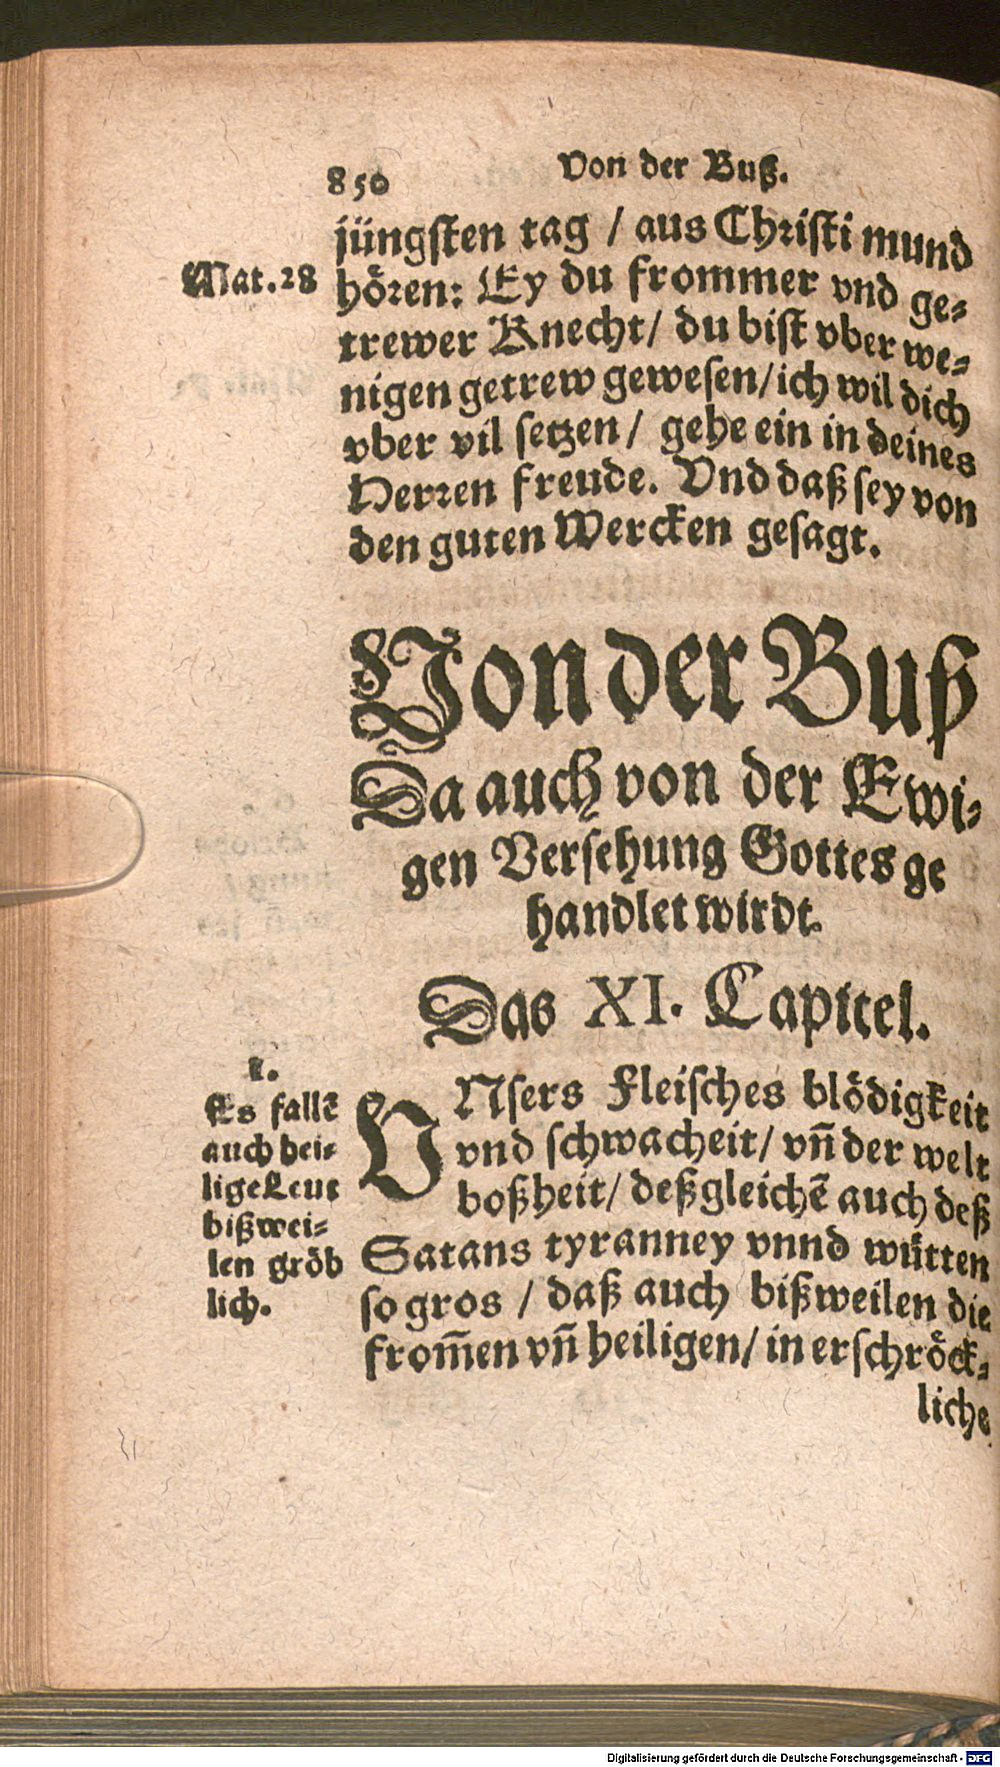 850 Von der Buß.
jüngsten tag / aus Christi mund
Mat.28
hören: Ey du frommer vnd ge-
trewer Knecht/ du bist vber we-
nigen getrew gewesen/ich wil dich
vber vil setzen/ gehe ein in deines
Herren freude. Vnd daß sey von
den guten Wercken gesagt.
Von der Buß
Da auch von der Ewi-
gen Versehung Gottes ge
handlet wirdt.
Das XI. Capitel.
1.
Es fallē
auch hei-
lige Leut
bißwei-
len gröb
lich.
VNsers Fleisches blödigkeit
vnd schwacheit/ vñ der welt
boßheit/ deßgleichē auch deß
Satans tyranney vnnd wütten
so gros / daß auch bißweilen die
from̄en vñ heiligen/ in erschröck-
liche
Digitalisierung gefördert durch die Deutsche Forschungsgemeinschaft - DFG